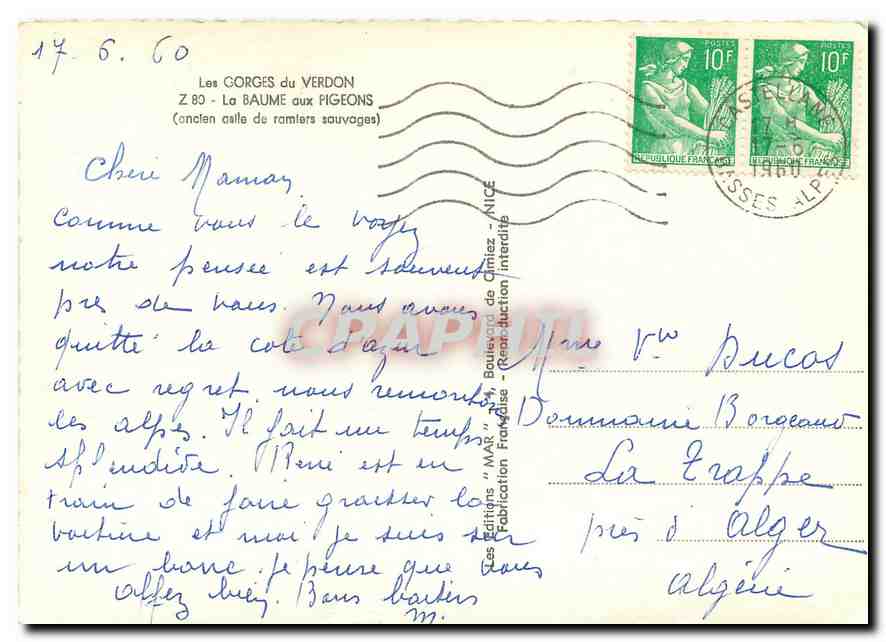 17. 6. 60
Les GORGES du VERDON
Z 80 - La BAUME aux PIGEONS
(ancien asile de ramiers sauvages)
POSTES
10F
REPUBLIQUE FRANÇAISE
POSTES
10F
REPUBLIQUE FRANÇAISE
CASTELLANE
17 H
17-6
1960
BASSES ALPES
Chère Maman
comme vous le voyez
notre pensée est souvent
près de vous. Nous avons
quitté la cote d'azur
avec regret. nous remontons
les alpes. Il fait un temps
splendide. René est en
train de faire graisser la
voiture et moi je suis sur
un banc. je pense que vous
allez bien. Bons baisers
M.
Les Editions "MAR" - 14, Boulevard de Cimiez - NICE
Fabrication Française - Reproduction interdite
CPAPHIL
Mme Vve Ducos
Dommaine Borgeaud
La Trappe
près d'Alger
Algérie